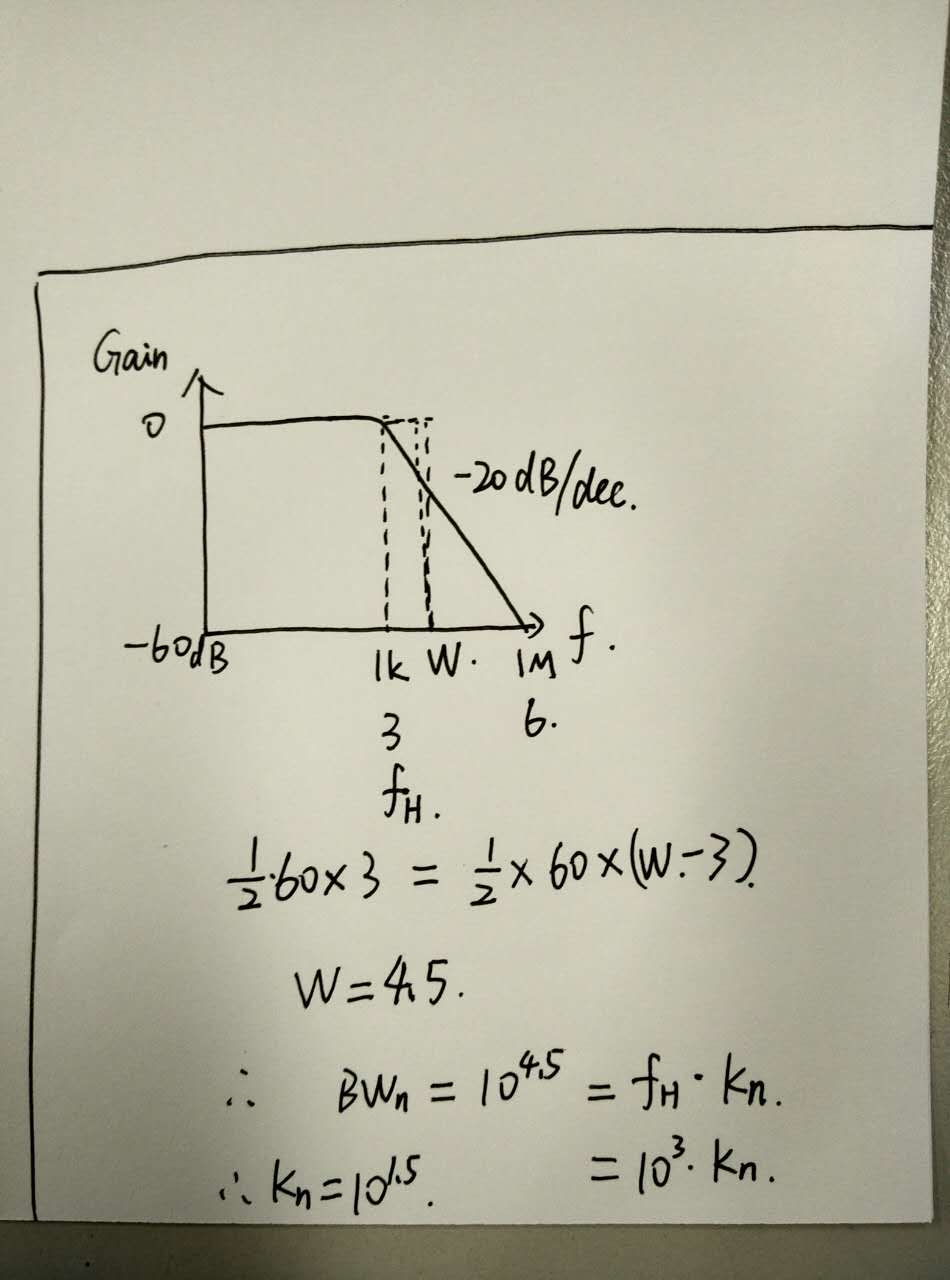 Gain
0
-20 dB/dec.
-60dB
1k W. 1M f.
3 6.
fH.
1/2·60×3 = 1/2×60×(W-3).
W=4.5.
∴ BWn = 10^4.5 = fH·kn.
∴ kn=10^1.5. = 10^3·kn.